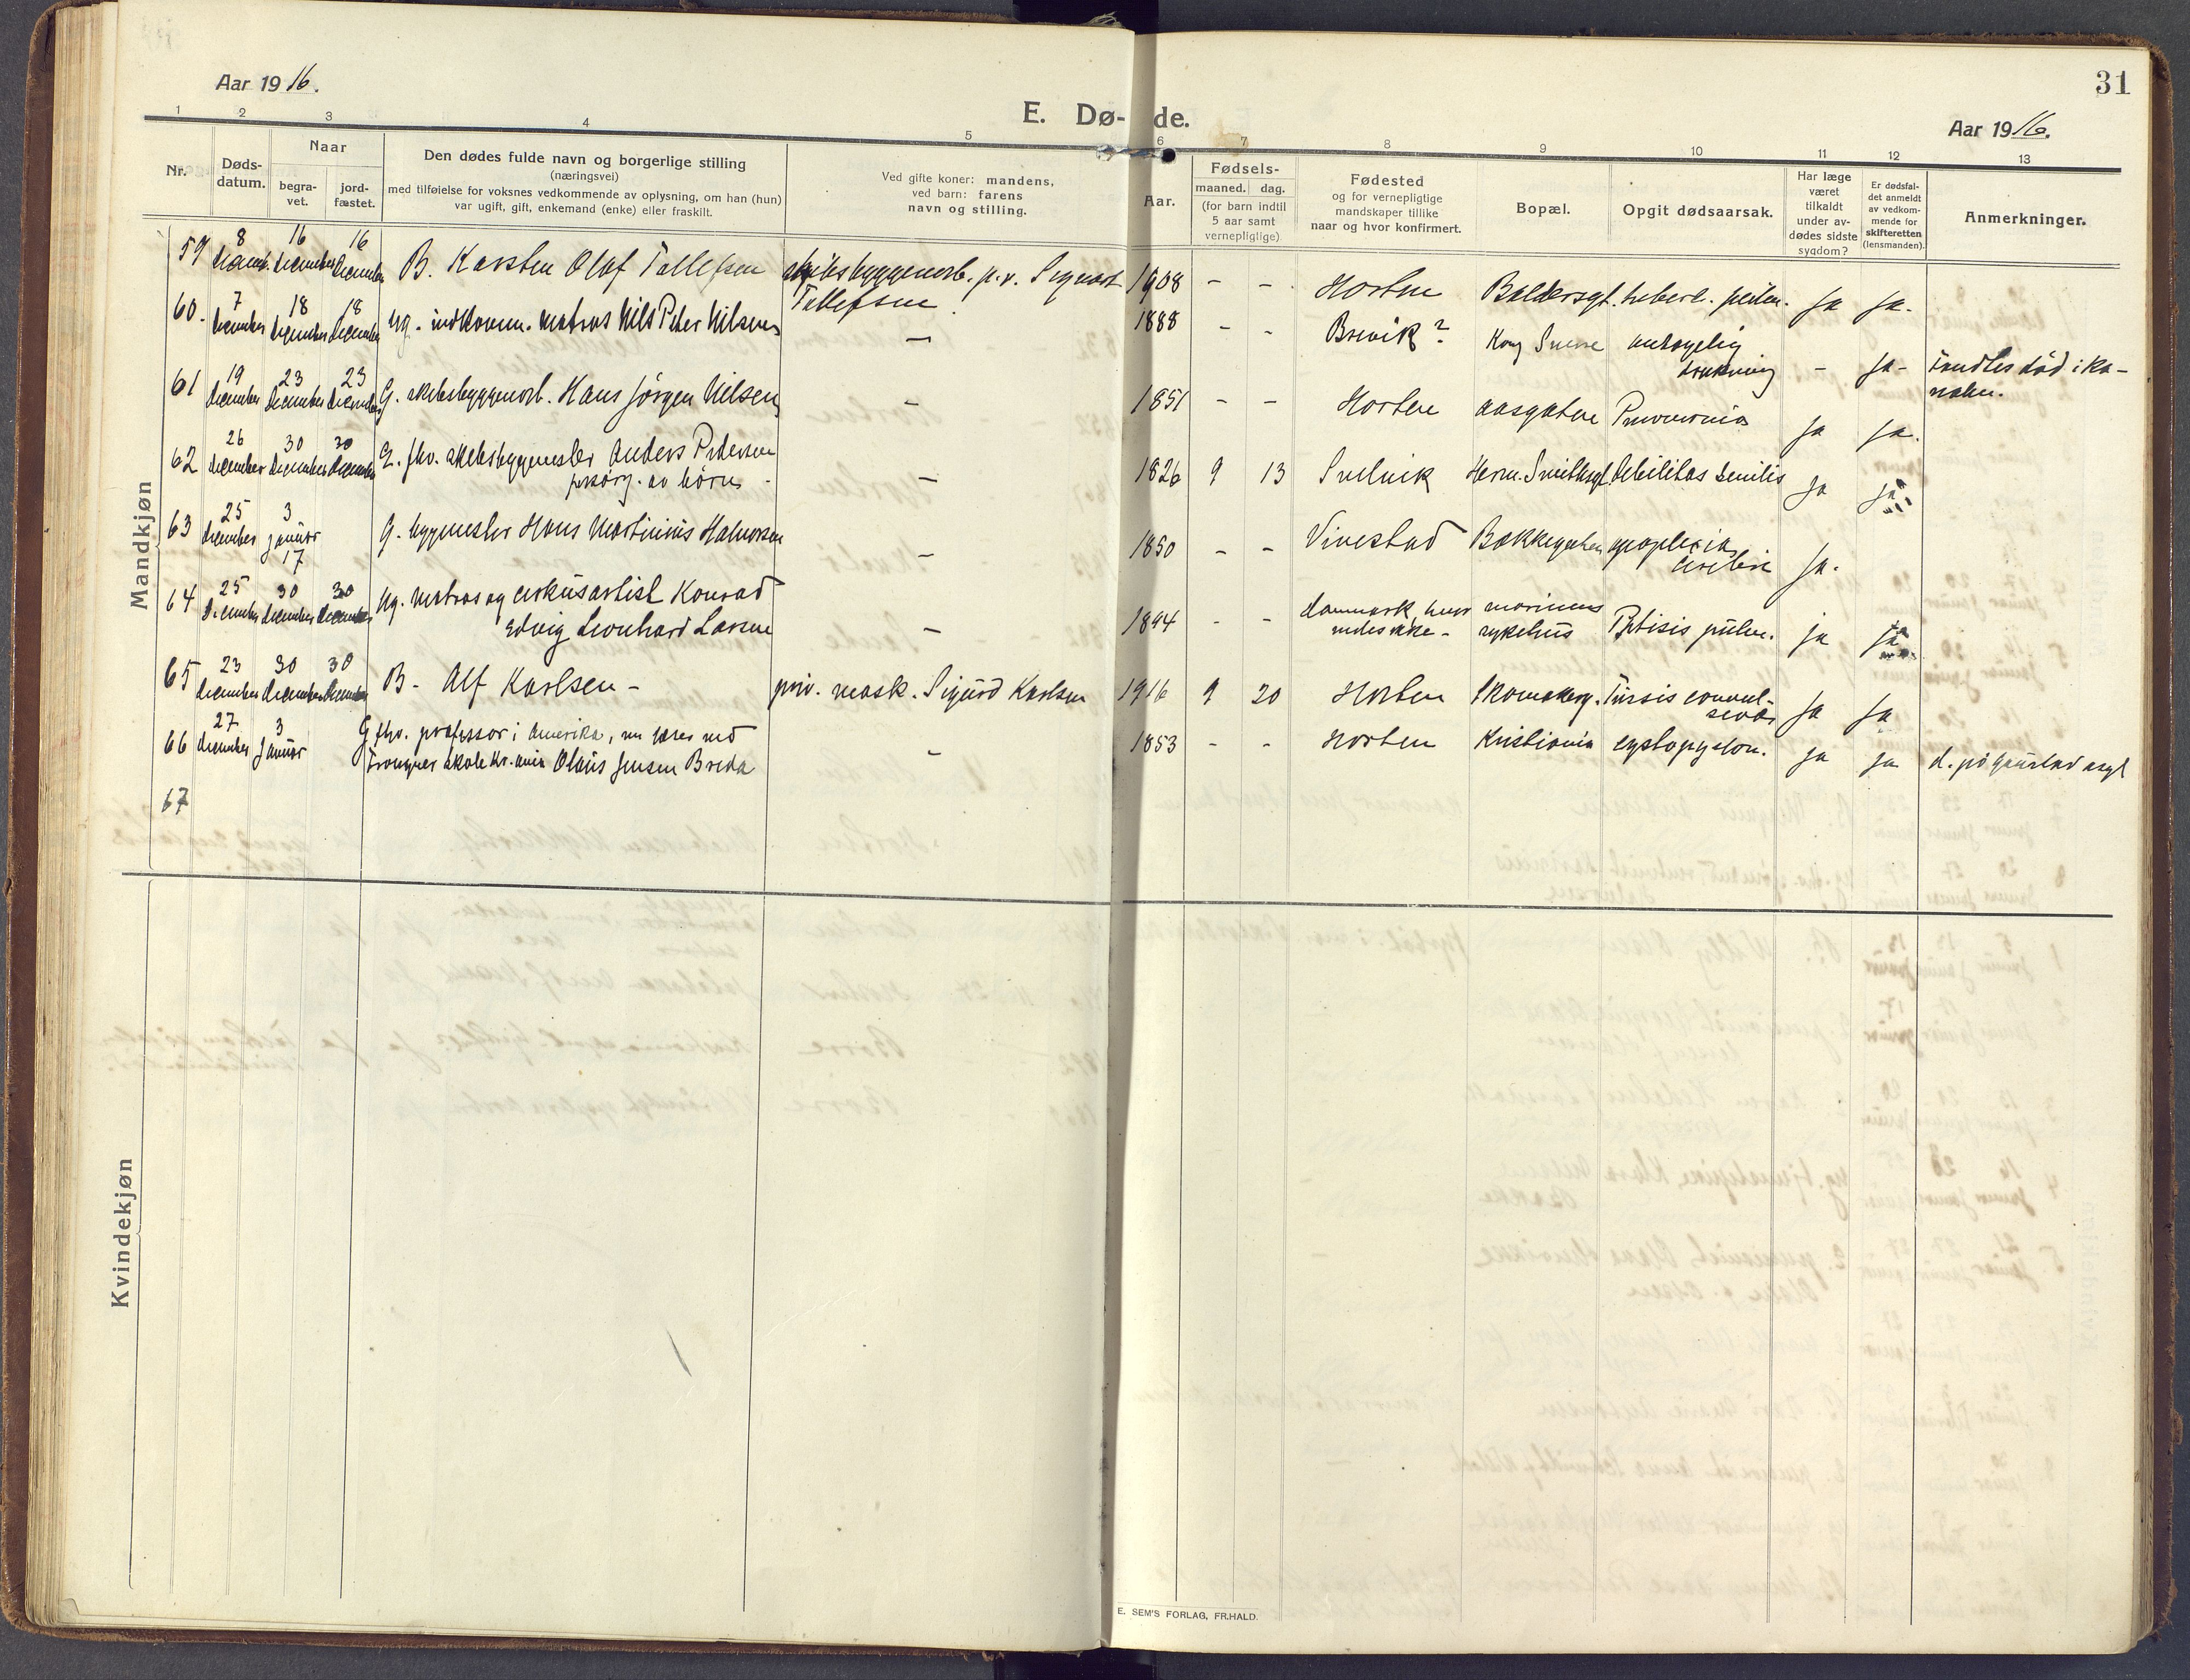 31
Aar 1916.
E. Dø-de.
Aar 1916.
1 2 3 4 5 6 7 8 9 10 11 12 13
Nr.
Døds-datum.
Naar
begra-vet.
jord-fæstet.
Den dødes fulde navn og borgerlige stilling
(næringsvei)
med tilføielse for voksnes vedkommende av oplysning, om han (hun)
var ugift, gift, enkemand (enke) eller fraskilt.
Ved gifte koner: mandens,
ved barn: farens
navn og stilling.
Aar.
Fødsels-
maaned. dag.
(for barn indtil
5 aar samt
vernepligtige)
Fødested
og for vernepligtige
mandskaper tillike
naar og hvor konfirmert.
Bopæl.
Opgit dødsaarsak.
Har læge
været
tilkaldt
under av-
dødes sidste
sygdom?
Er dødsfal-
det anmeldt
av vedkom-
mende for
skifteretten
(lensmanden).
Anmerkninger.
Mandkjøn
59 8 decemb. 16 december 16 december B. Karsten Olaf Tollefsen skibsbyggerarb. p.v. Sigvart 1908 - - Horten Baldersgt. tuberc. ja ja.
Tollefsen.
60. 7 december 18 december 18 december ug. indkomm. matros Nils Peter Nilsen — 1888 - - Brevik? Kong Sverre antagelig
drukning - ja- Fandtes død i ka-
nalen.
61 19 december 23 december 23 december G. skibsbyggerarb. Hans Jörgen Nilsen — 1851 - - Horten aasgaten Pneumonia ja ja.
62 26 december 30 december 30 december E. fhv. skibsbygmester Anders Pedersen
forsörg. av börn - — 1826 9 13 Svelvik Herm. Smithsgt. debilitas senilis ja ja
63 25 december 3 januar G. bygmester Hans Martinius Halvorsen — 1850 - - Vivestad Bakkegaten apoplexia
cerebri ja.
17
64 25 december 30 december 30 december ug. matros og cirkusartist Konrad
Edvig Leonhard Larsen — 1894 - - danmark, hvor
vides ikke - marinens
sykehus Phtisis pulm. ja ja
65 23 december 30 december 30 december B- Alf Karlsen - priv. mask. Sigurd Karlsen 1916 9 20 Horten Skomakerg. Tussis convul-
siva ja ja
66 27 december 3 januar G fhv. professor i Amerika, nu lærer ved
Frogner skole Kr.ania Olaus Jensen Breda — 1853 - - Horten Kristiania ja ja d. på Gaustad asyl
67
Kvindekjøn
E. SEM'S FORLAG, FR.HALD.